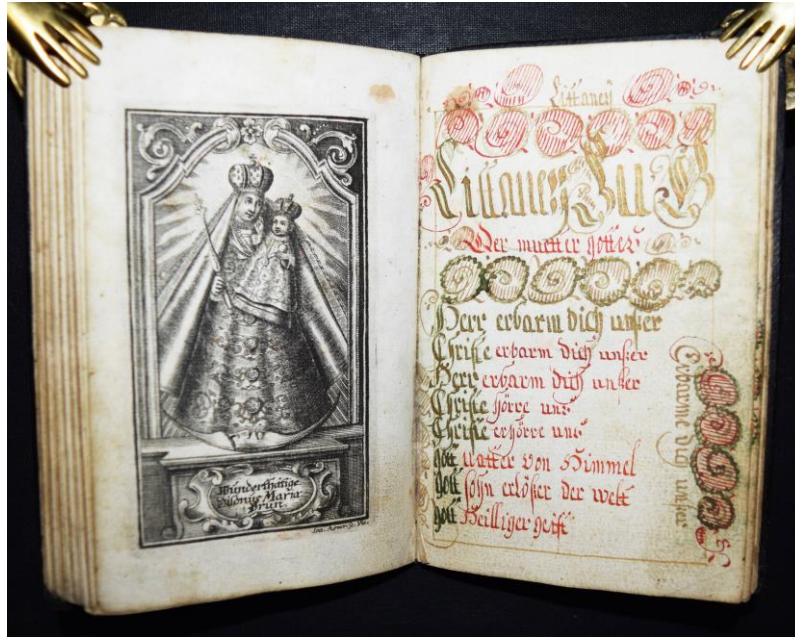 Wunderthätige
Bildnus Maria
Brun.
Littaney
Littaney Zu U
Der muetter gottes
Herr erbarm dich unser
Christe erbarm dich unser
Herr erbarm dich unser
Christe hörre uns
Christe erhörre uns
gott vatter von Himmel
gott sohn erlößer der welt
gott Heilliger geist
Erbarme dich unser